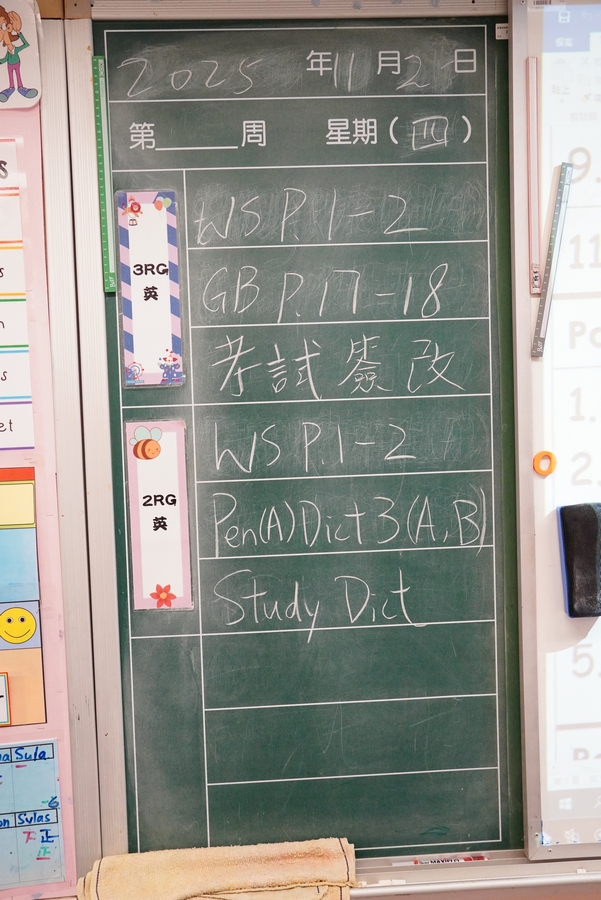 2025 年 11 月 2 日
第______周 星期 ( 四 )
3RG
英
WS P.1-2
GB P.17-18
考試簽改
2RG
英
WS P.1-2
Pen(A) Dict 3 (A,B)
Study Dict
Sula
Sulas
9.
11
1.
2.
5.